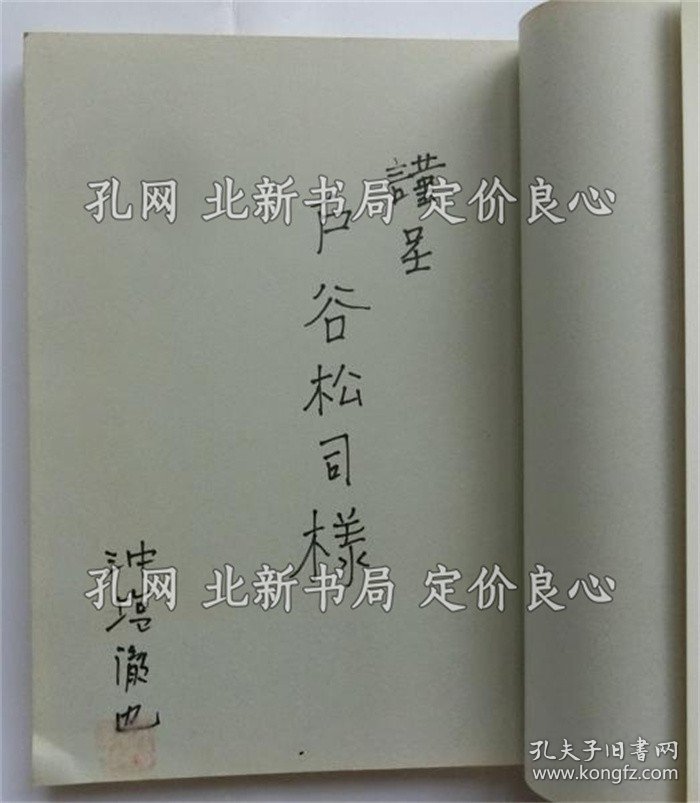 謹呈
戸谷松司様
沖塩徹也
孔网 北新书局 定价良心
孔网 北新书局 定价良心
孔夫子旧书网
www.kongfz.com